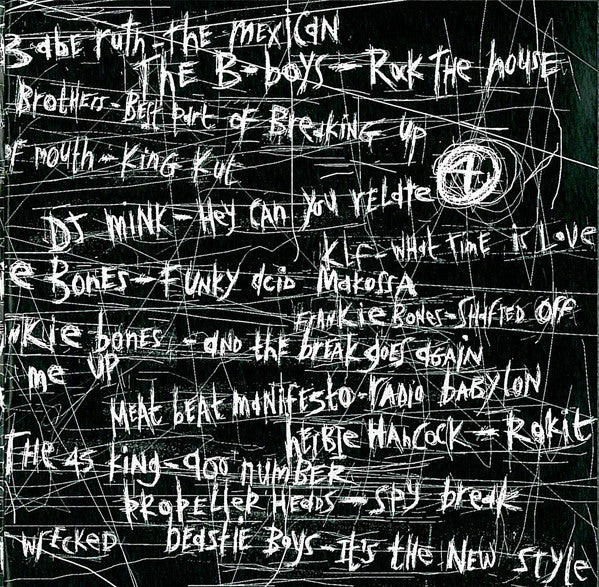 Babe ruth-the mexican
The B-boys-Rock The house
Brothers-Best part of Breaking up
mouth-King Kut
4
DJ MINK-Hey CAN you relate
KLF-what time is Love
e Bones-Funky acid Makossa
Frankie Bones-Shafted Off
nkie bones -and the break goes again
me up
Meat beat manifesto-radio babylon
herbie Hancock-Rokit
The 45 King-900 number
propeller Heads-spy break
wrecked beastie Boys-It's the New style